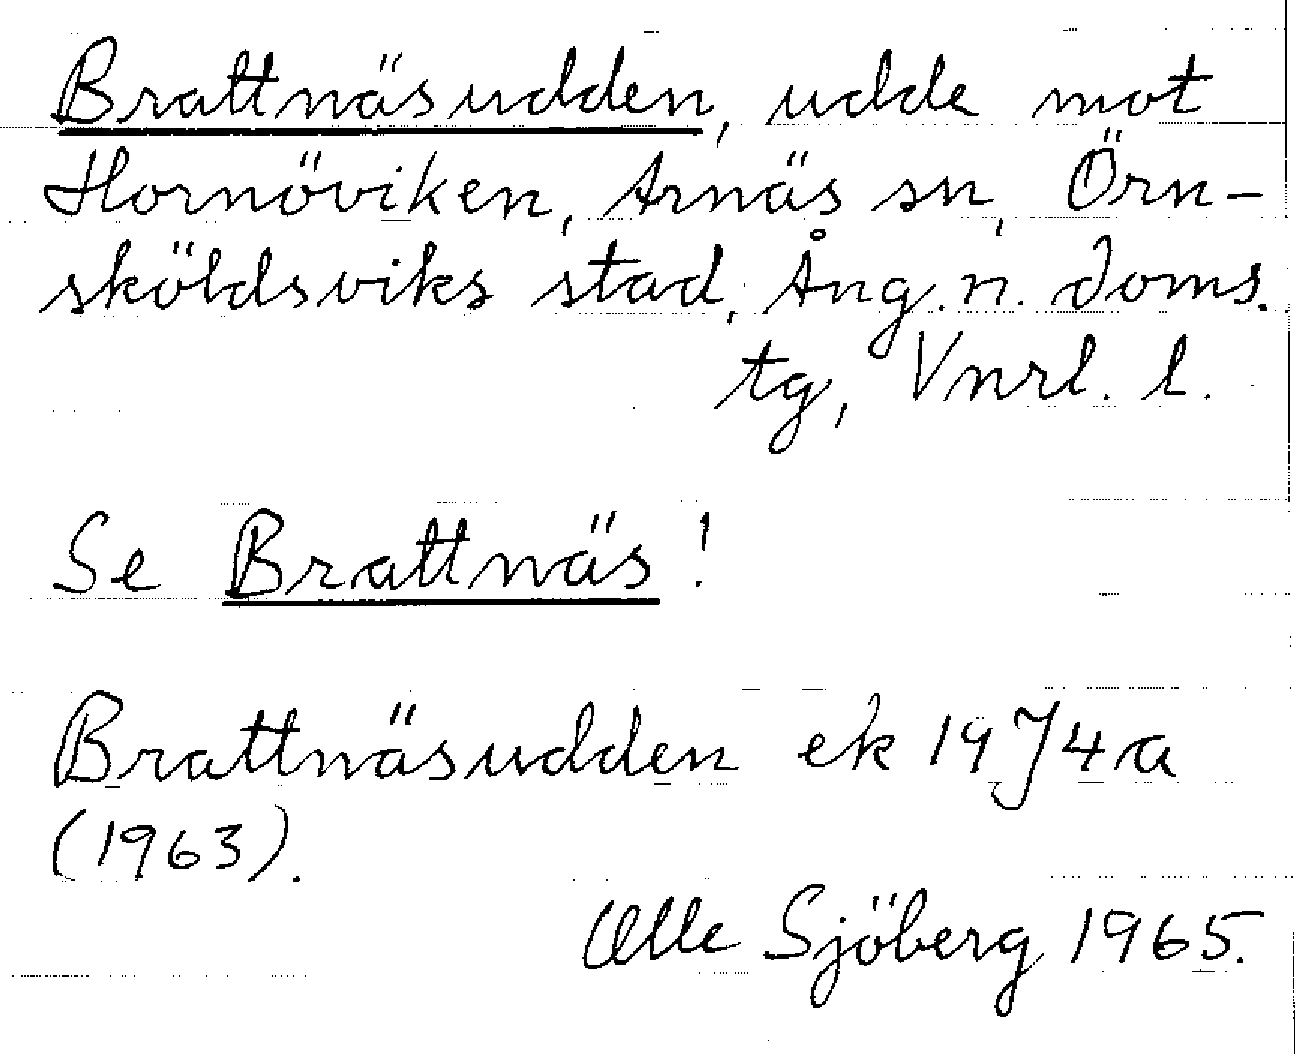 Brattnäsudden, udde mot
Hornöviken, Arnäs sn, Örn-
sköldsviks stad, Ång. n. doms.
tg, Vnrl. l.
Se Brattnäs!
Brattnäsudden ek 19 J 4 a
(1963).
Olle Sjöberg 1965.